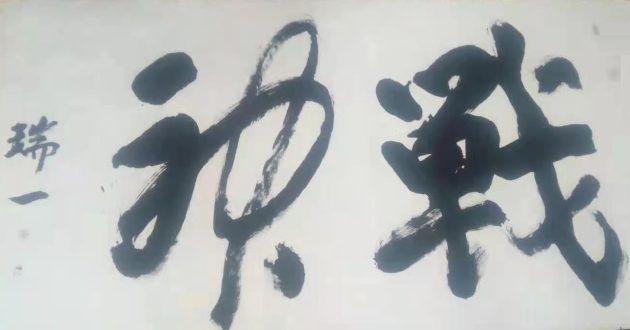 戰神
瑞一